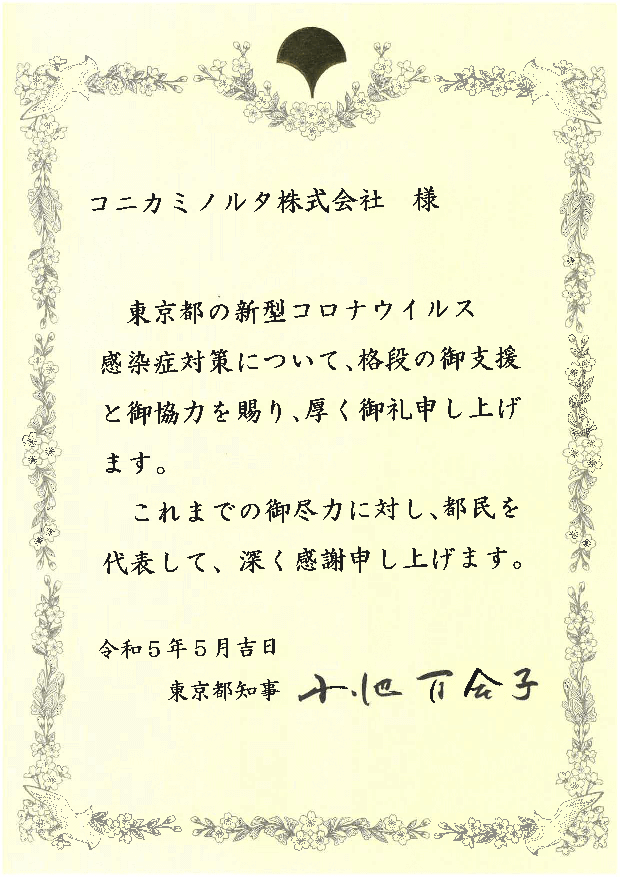 コニカミノルタ株式会社　様
東京都の新型コロナウイルス
感染症対策について、格段の御支援
と御協力を賜り、厚く御礼申し上げ
ます。
これまでの御尽力に対し、都民を
代表して、深く感謝申し上げます。
令和５年５月吉日
東京都知事　小池百合子